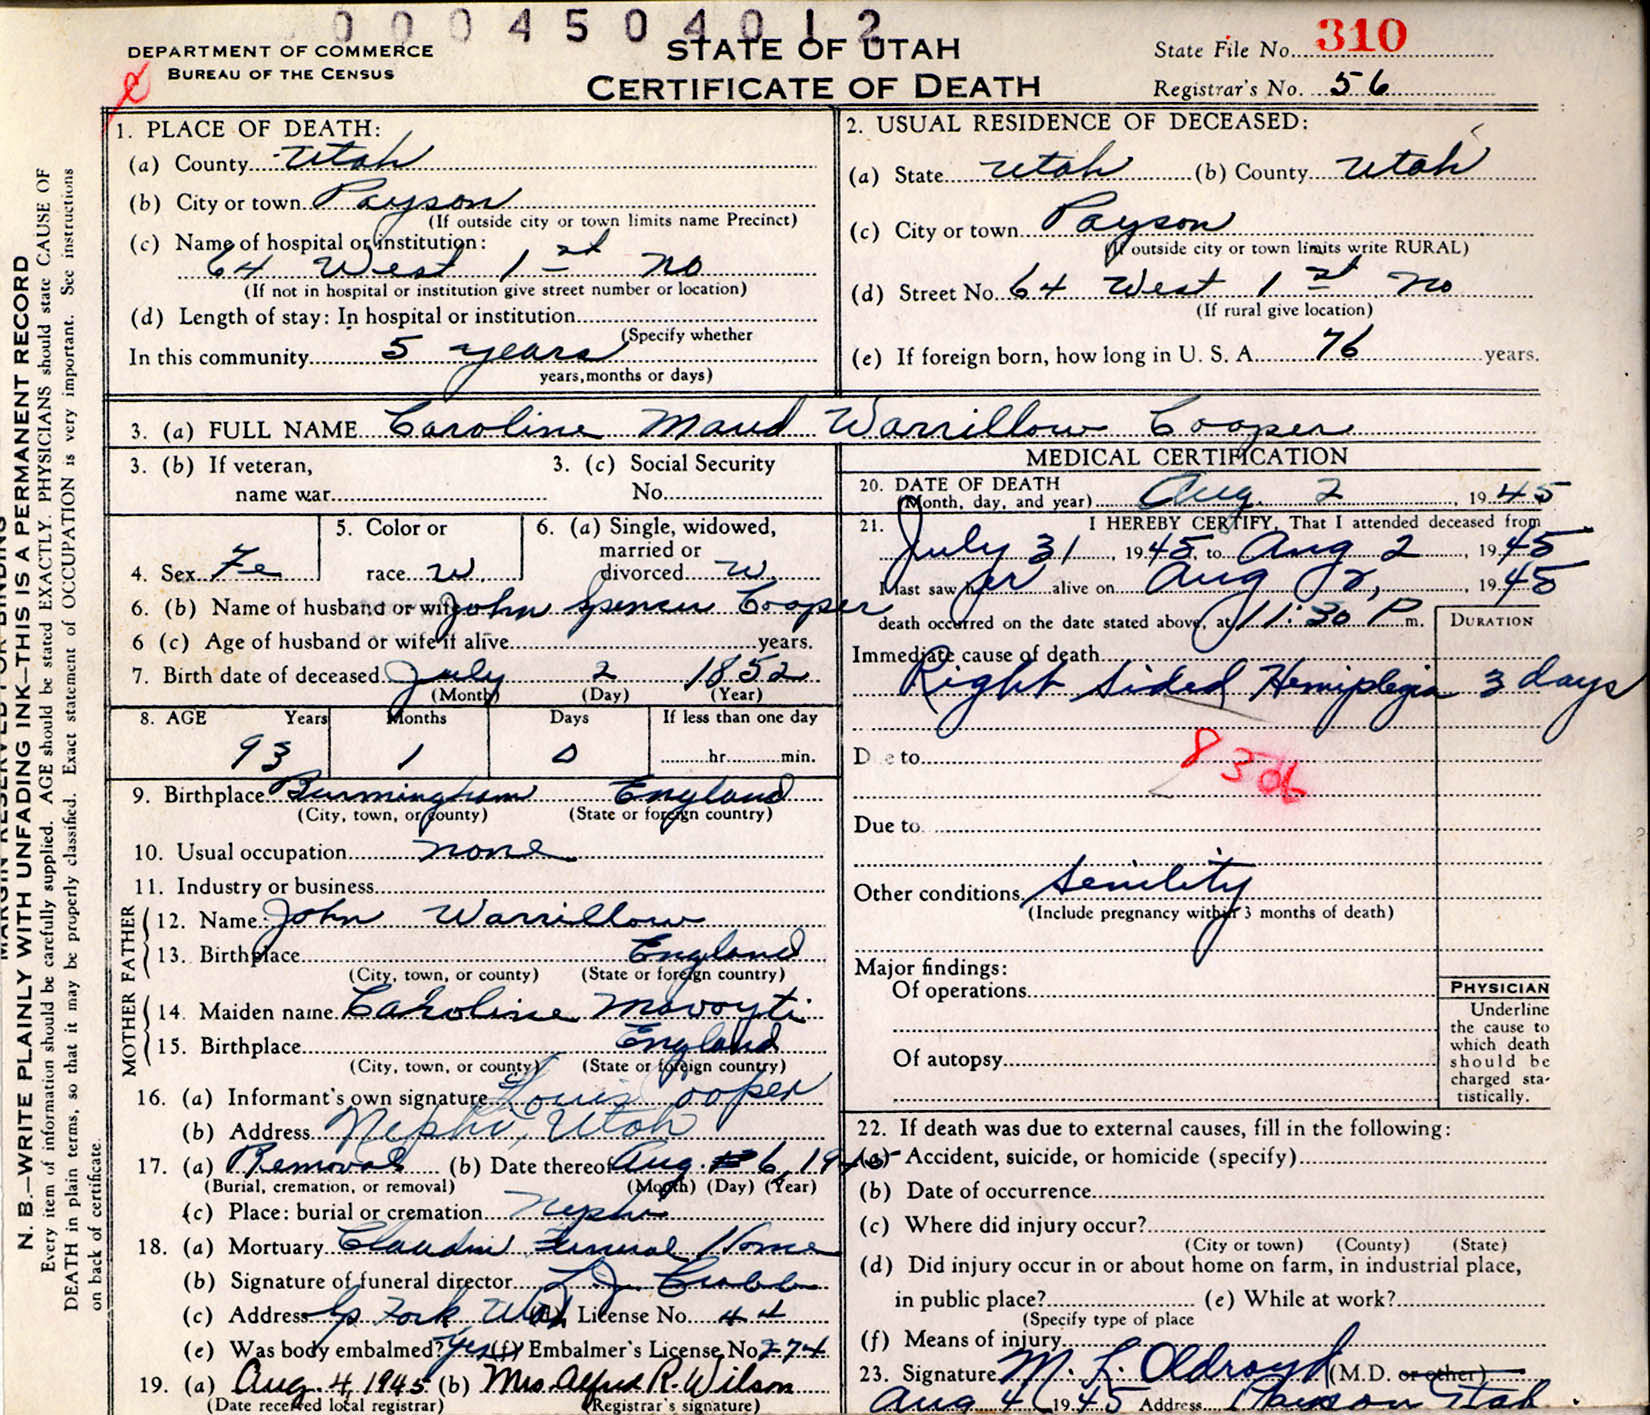 0004504012
DEPARTMENT OF COMMERCE
BUREAU OF THE CENSUS
STATE OF UTAH
CERTIFICATE OF DEATH
State File No. 310
Registrar's No. 56
1. PLACE OF DEATH:
(a) County Utah
(b) City or town Payson
(If outside city or town limits name Precinct)
(c) Name of hospital or institution:
64 West 1st no
(If not in hospital or institution give street number or location)
(d) Length of stay: In hospital or institution
(Specify whether
In this community 5 years
years, months or days)
2. USUAL RESIDENCE OF DECEASED:
(a) State Utah (b) County Utah
(c) City or town Payson
(If outside city or town limits write RURAL)
(d) Street No. 64 West 1st no
(If rural give location)
(e) If foreign born, how long in U. S. A. 76 years.
3. (a) FULL NAME Caroline Maud Warrillow Cooper
3. (b) If veteran,
name war
3. (c) Social Security
No.
4. Sex Fe
5. Color or
race W.
6. (a) Single, widowed,
married or
divorced W.
6. (b) Name of husband or wife John Spencer Cooper
6 (c) Age of husband or wife if alive years.
7. Birth date of deceased July 2 1852
(Month) (Day) (Year)
8. AGE Years Months Days If less than one day
93 1 0 hr. min.
9. Birthplace Burmingham England
(City, town, or county) (State or foreign country)
10. Usual occupation none
11. Industry or business
FATHER
12. Name: John Warrillow
13. Birthplace England
(City, town, or county) (State or foreign country)
MOTHER
14. Maiden name Caroline Movoyti
15. Birthplace England
(City, town, or county) (State or foreign country)
16. (a) Informant's own signature Louis Cooper
(b) Address Nephi, Utah
17. (a) Removal (b) Date thereof Aug. 6, 1945
(Burial, cremation, or removal) (Month) (Day) (Year)
(c) Place: burial or cremation Nephi
18. (a) Mortuary Claudin Funeral Home
(b) Signature of funeral director L. J. Crabb
(c) Address Sp Fork Utah License No. 44
(e) Was body embalmed? yes (f) Embalmer's License No. 274
19. (a) Aug. 4, 1945 (b) Mrs. Alfred R. Wilson
(Date received local registrar) (Registrar's signature)
MEDICAL CERTIFICATION
20. DATE OF DEATH
(Month, day, and year) Aug. 2, 1945
21. I HEREBY CERTIFY, That I attended deceased from
July 31, 1945, to Aug 2, 1945
I last saw her alive on Aug 2, 1945
death occurred on the date stated above, at 11:30 P. m.
DURATION
Immediate cause of death
Right Sided Hemiplegia 3 days
Due to
83ab
Due to
Other conditions Senility
(Include pregnancy within 3 months of death)
Major findings:
Of operations
Of autopsy
PHYSICIAN
Underline
the cause to
which death
should be
charged sta-
tistically.
22. If death was due to external causes, fill in the following:
(a) Accident, suicide, or homicide (specify)
(b) Date of occurrence
(c) Where did injury occur?
(City or town) (County) (State)
(d) Did injury occur in or about home on farm, in industrial place,
in public place? (e) While at work?
(Specify type of place
(f) Means of injury
23. Signature M. L. Oldroyd (M.D. or other)
Aug 4 1945 Address Payson Utah.
N. B.—WRITE PLAINLY WITH UNFADING INK—THIS IS A PERMANENT RECORD
Every item of information should be carefully supplied. AGE should be stated EXACTLY. PHYSICIANS should state CAUSE OF
DEATH in plain terms, so that it may be properly classified. Exact statement of OCCUPATION is very important. See instructions
on back of certificate.